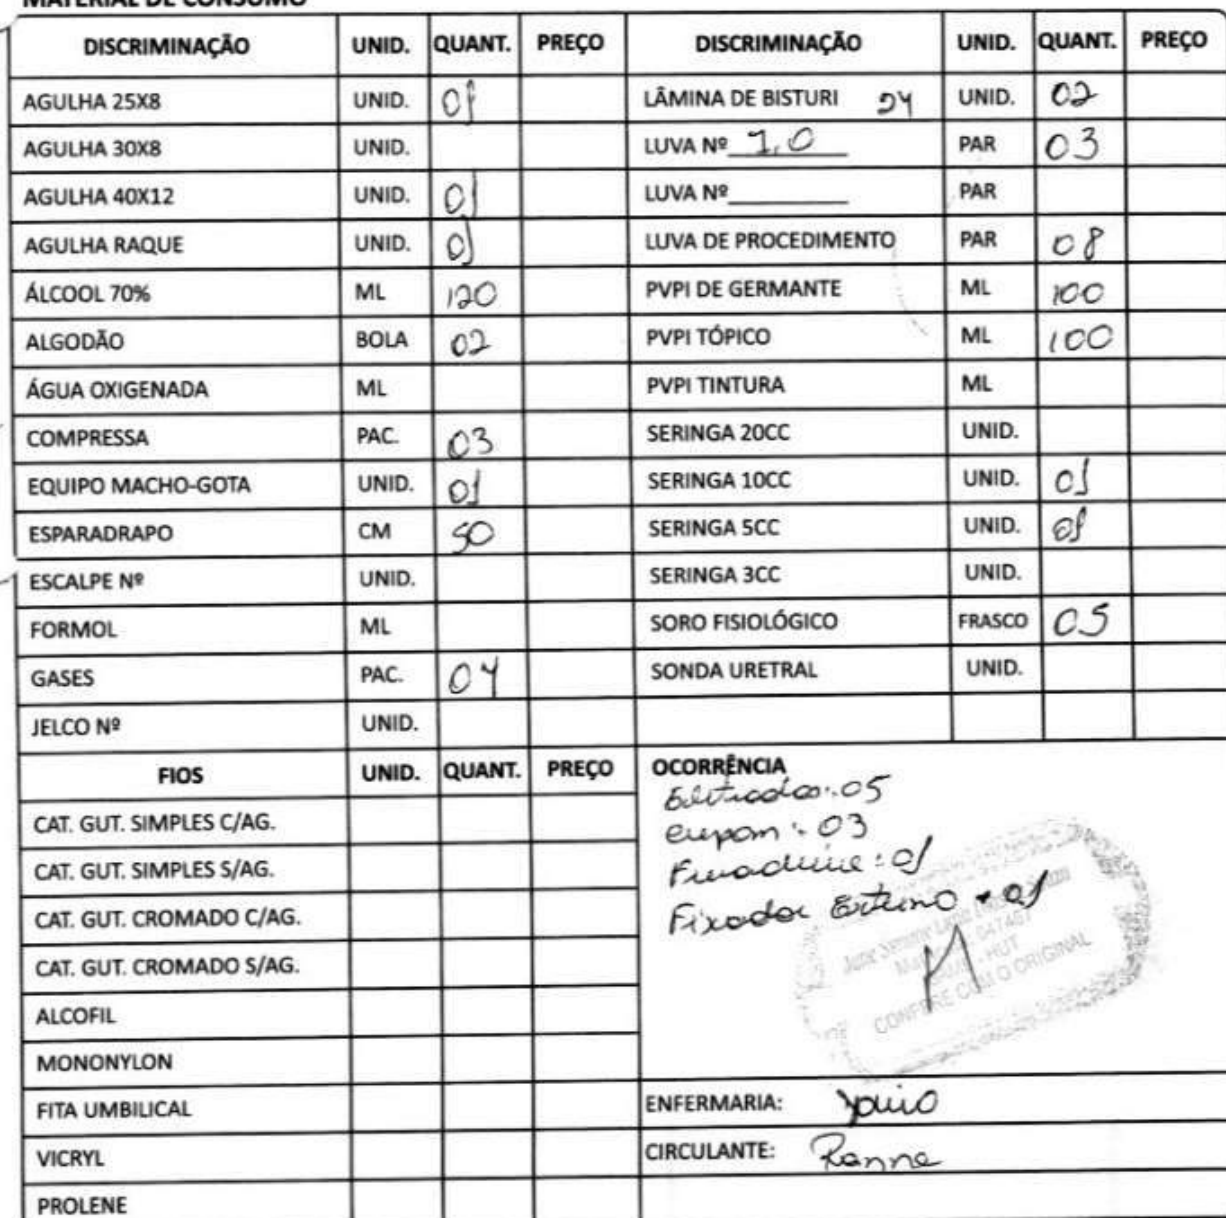 MATERIAL DE CONSUMO
DISCRIMINAÇÃO UNID. QUANT. PREÇO DISCRIMINAÇÃO UNID. QUANT. PREÇO
AGULHA 25X8 UNID. 01 LÂMINA DE BISTURI 24 UNID. 02
AGULHA 30X8 UNID. LUVA Nº 7,0 PAR 03
AGULHA 40X12 UNID. 01 LUVA Nº PAR
AGULHA RAQUE UNID. 01 LUVA DE PROCEDIMENTO PAR 08
ÁLCOOL 70% ML 120 PVPI DE GERMANTE ML 100
ALGODÃO BOLA 02 PVPI TÓPICO ML 100
ÁGUA OXIGENADA ML PVPI TINTURA ML
COMPRESSA PAC. 03 SERINGA 20CC UNID.
EQUIPO MACHO-GOTA UNID. 01 SERINGA 10CC UNID. 01
ESPARADRAPO CM 50 SERINGA 5CC UNID. 01
ESCALPE Nº UNID. SERINGA 3CC UNID.
FORMOL ML SORO FISIOLÓGICO FRASCO 05
GASES PAC. 04 SONDA URETRAL UNID.
JELCO Nº UNID.
FIOS UNID. QUANT. PREÇO OCORRÊNCIA
: 05
CAT. GUT. SIMPLES C/AG.
: 03
CAT. GUT. SIMPLES S/AG.
: 01
CAT. GUT. CROMADO C/AG. Fixador Externo 01
CAT. GUT. CROMADO S/AG.
HUT
CONFERE COM O ORIGINAL
ALCOFIL
MONONYLON
FITA UMBILICAL ENFERMARIA:
VICRYL CIRCULANTE: Ranne
PROLENE